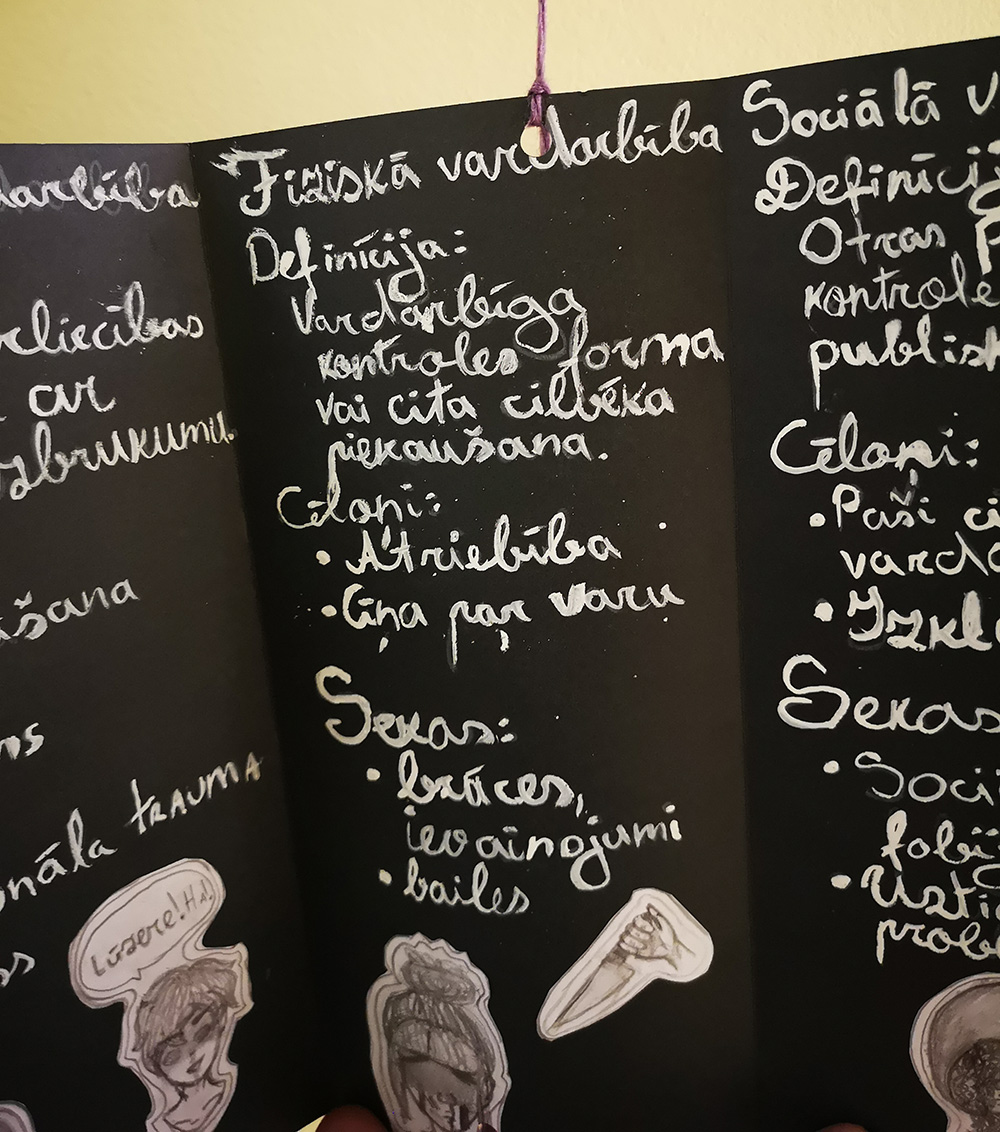 darbība
rliecības
ar
zbrukumu.
āšana
ns
onāla trauma
ss
Lūsere! Ha!
Fiziskā vardarbība
Definīcija:
Vardarbīga
kontroles forma
vai cita cilvēka
piekaušana.
Cēloņi:
• Atriebība
• Cīņa par varu
Sekas:
• brūces,
ievainojumi
• bailes
Sociālā v
Definīcij
Otras p
kontrole
publisk
Cēloņi:
• Paši ci
vardo
• Izkl
Sekas
• Soci
fobij
• Uzti
prob